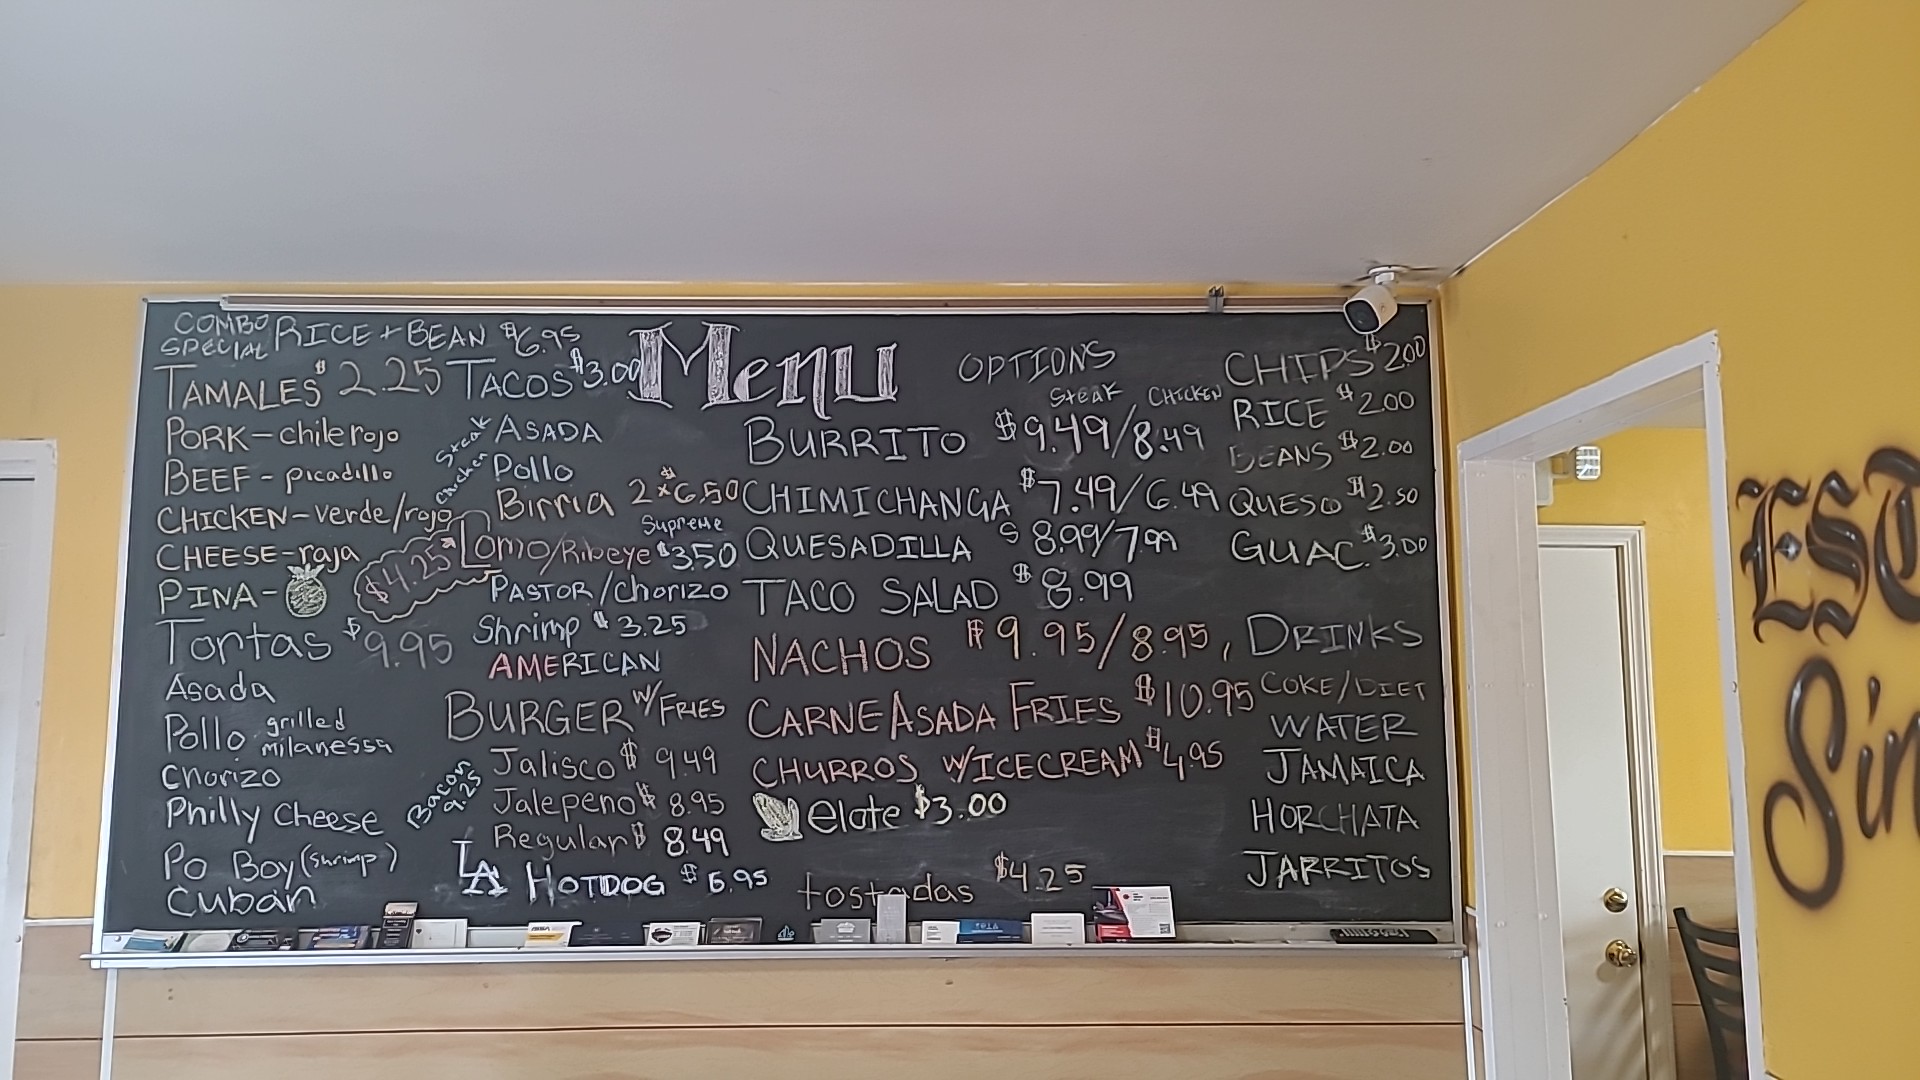 COMBO SPECIAL RICE + BEAN $6.95
TAMALES $2.25
PORK - chile rojo
BEEF - picadillo
CHICKEN - verde/rojo
CHEESE - raja
PINA -
Tortas $9.95
Asada
Pollo grilled milanessa
Chorizo
Philly Cheese
Po Boy (shrimp)
Cuban
TACOS $3.00
Steak ASADA
Chicken Pollo
Birria 2x $6.50
Lomo/Ribeye $4.25
Supreme $3.50
PASTOR/Chorizo
Shrimp $3.25
AMERICAN
BURGER W/ FRIES
Jalisco $9.49
Jalepeno $8.95
Regular $8.49
Bacon 9.25
LA HOTDOG $6.95
Menu
OPTIONS
STEAK CHICKEN
BURRITO $9.49/8.49
CHIMICHANGA $7.49/6.49
QUESADILLA $8.99/7.99
TACO SALAD $8.99
NACHOS $9.95/8.95
CARNE ASADA FRIES $10.95
CHURROS W/ICECREAM $4.95
elote $3.00
tostadas $4.25
CHIPS $2.00
RICE $2.00
BEANS $2.00
QUESO $2.50
GUAC. $3.00
DRINKS
COKE/DIET
WATER
JAMAICA
HORCHATA
JARRITOS
EST
Sin